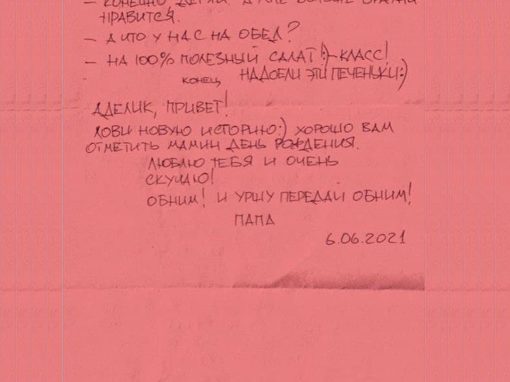 – КОНЕЧНО, ДЕТКИ. А МНЕ БОЛЬШЕ
НРАВИТСЯ.
– А ЧТО У НАС НА ОБЕД?
– НА 100% ПОЛЕЗНЫЙ САЛАТ :) – КЛАСС!
КОНЕЦ НАДОЕЛИ ЭТИ ПЕЧЕНЬКИ :)
АДЕЛИК, ПРИВЕТ!
ЛОВИ НОВУЮ ИСТОРИЮ :) ХОРОШО ВАМ
ОТМЕТИТЬ МАМИН ДЕНЬ РОЖДЕНИЯ.
ЛЮБЛЮ ТЕБЯ И ОЧЕНЬ
СКУЧАЮ!
ОБНИМ! И УРШУ ПЕРЕДАЙ ОБНИМ!
ПАПА
6.06.2021